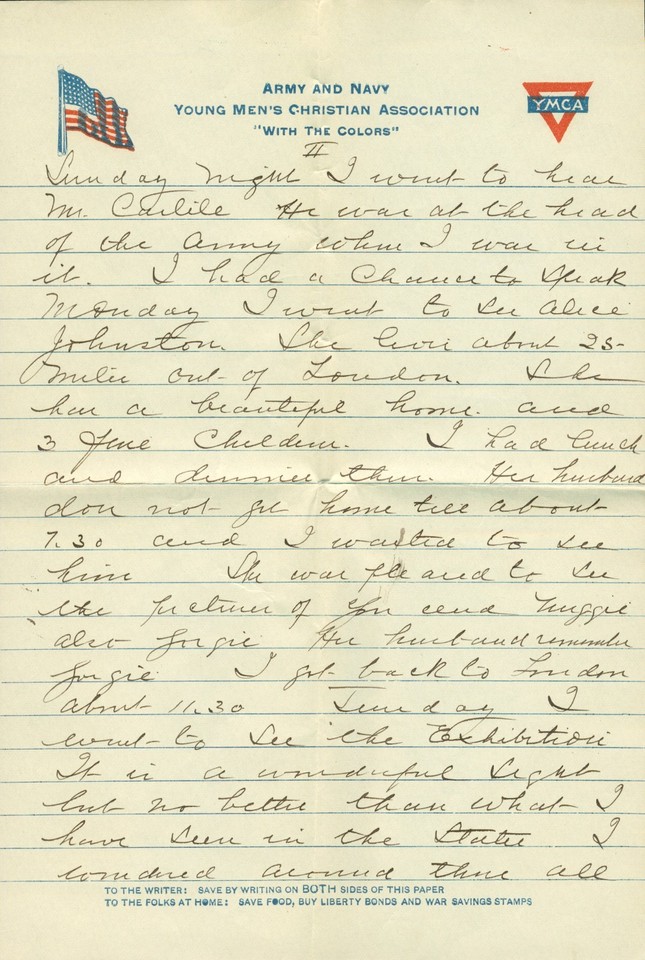 ARMY AND NAVY
YOUNG MEN'S CHRISTIAN ASSOCIATION
"WITH THE COLORS"
YMCA
II
Sunday night I went to hear
Mr. Carlile He was at the head
of the Army when I was in
it. I had a Chance to Speak
Monday I went to see Alice
Johnston. She lives about 25
miles out of London. She
has a beautiful home. and
3 fine Children. I had lunch
and dinner there. Her husband
does not get home till about
7.30 and I wanted to see
him She was pleased to see
the pictures of you and
also Her husband remember
I got back to London
about 11.30 Tuesday I
went to see the Exhibition
It is a wonderful Sight
but no better than what I
have seen in the States I
wondred around there all
TO THE WRITER: SAVE BY WRITING ON BOTH SIDES OF THIS PAPER
TO THE FOLKS AT HOME: SAVE FOOD, BUY LIBERTY BONDS AND WAR SAVINGS STAMPS